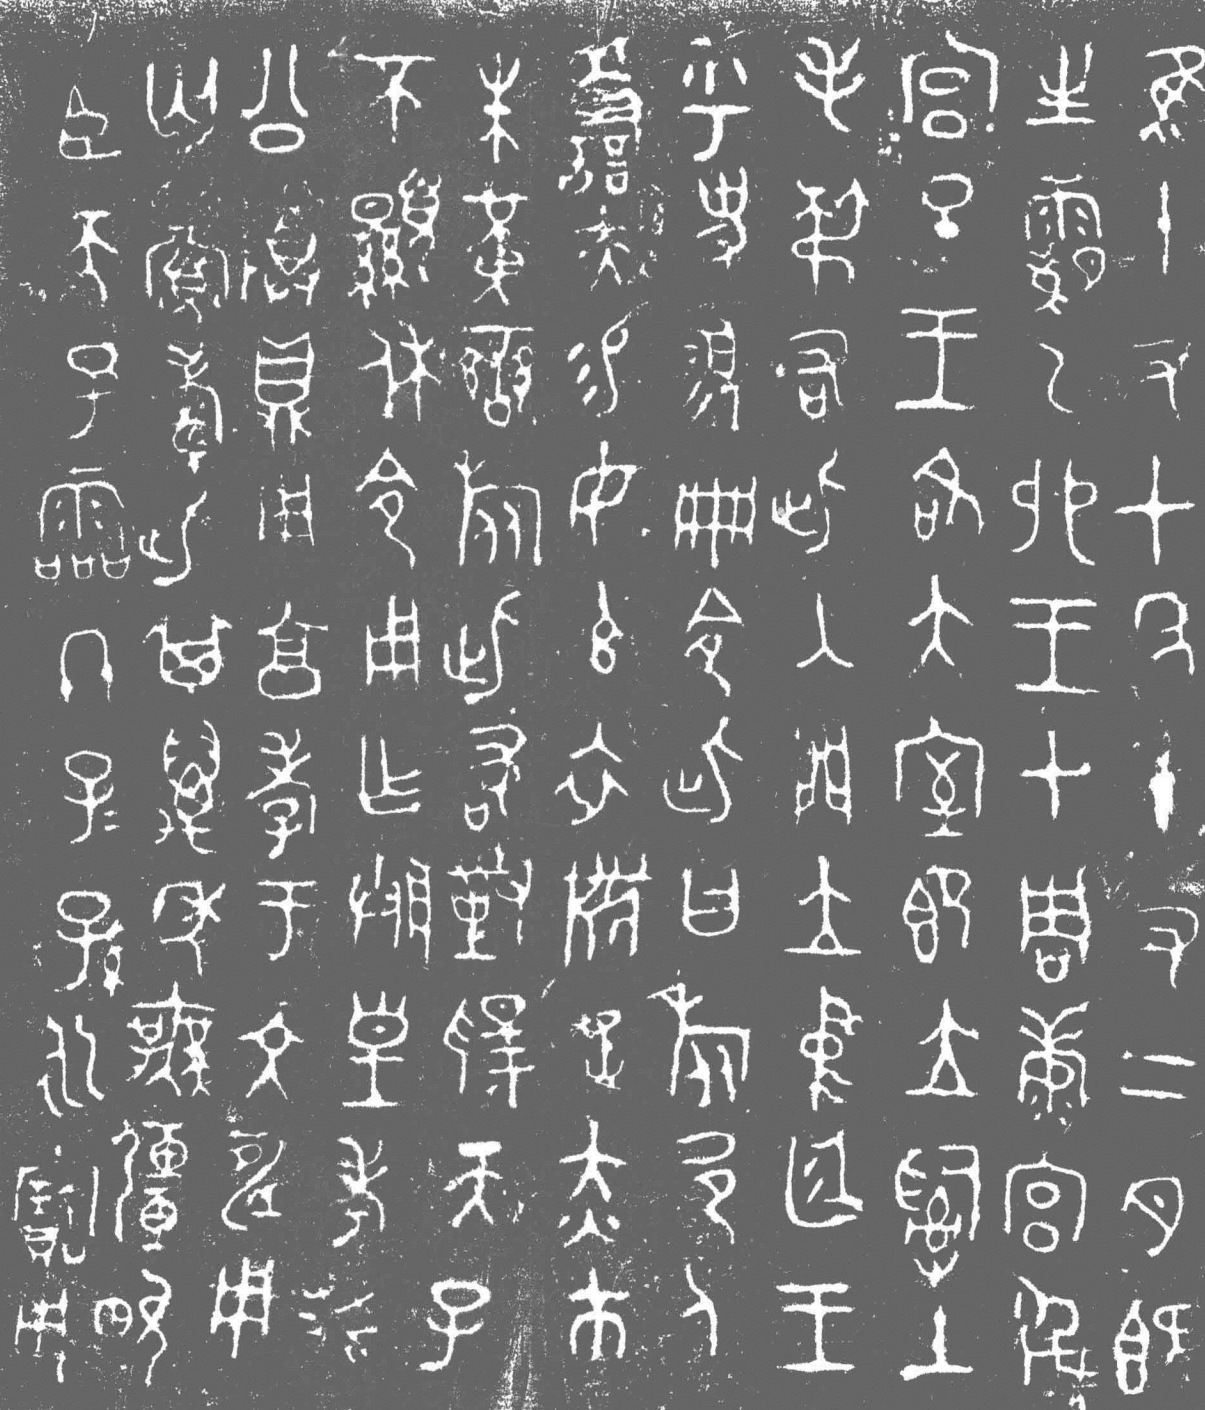 隹十又七年十又二月既
生霸乙卯王才周康宮𢓊
宮旦王各大室即立𤔲土
毛弔右此入門立中廷王
乎史翏冊令此曰旅邑人
善夫易女玄衣黹屯赤巿
朱黃䜌旅此敢對揚天子
不顯休令用乍朕皇考癸
公尊鼎用亯孝于文申用
匄眉壽此其萬年無彊畯
臣天子霝冬子子孫永寶用